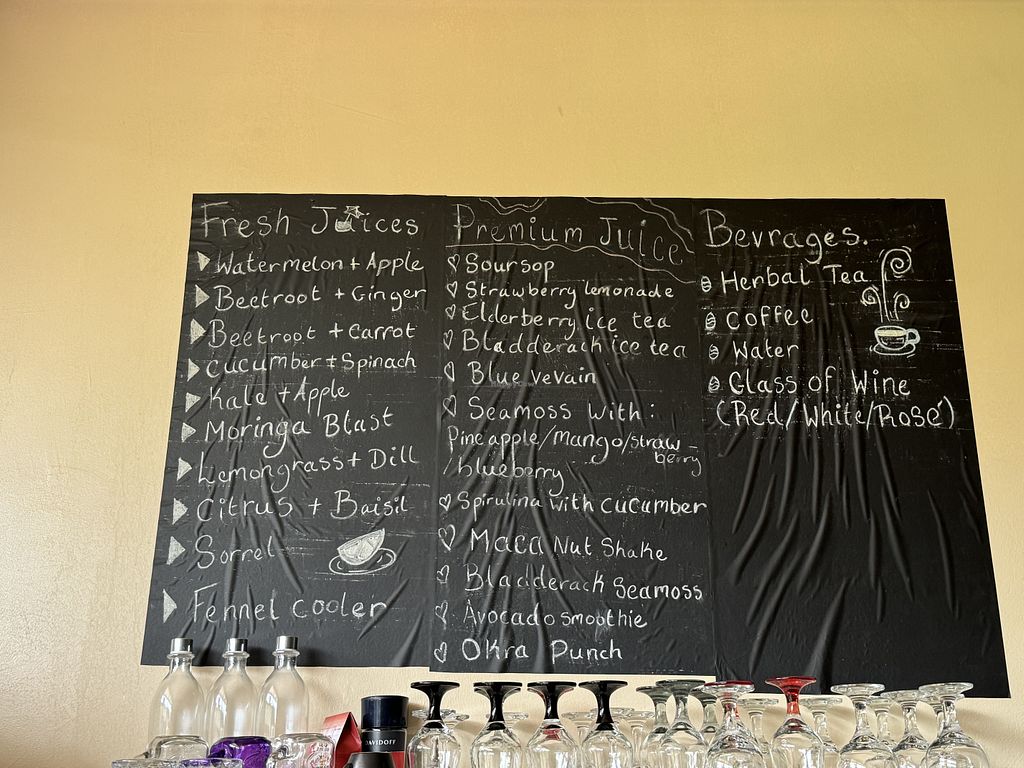 Fresh Juices
Watermelon + Apple
Beetroot + Ginger
Beetroot + Carrot
Cucumber + Spinach
Kale + Apple
Moringa Blast
Lemongrass + Dill
Citrus + Baisil
Sorrel
Fennel cooler
Premium Juice
Soursop
Strawberry lemonade
Elderberry ice tea
Bladderack ice tea
Blue vevain
Seamoss with:
Pineapple/mango/straw-
berry
/blueberry
Spirulina with cucumber
Maca Nut Shake
Bladderack Seamoss
Avocado smoothie
Okra Punch
Bevrages.
Herbal Tea
Coffee
Water
Glass of Wine
(Red/White/Rose')
DAVIDOFF